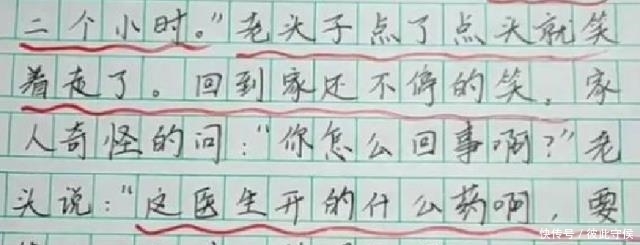 二个小时。”老头子点了点头就笑
着走了。回到家还不停的笑，家
人奇怪的问：“你怎么回事啊？”老
头说：“这医生开的什么药啊，要
快传号/彼此守候